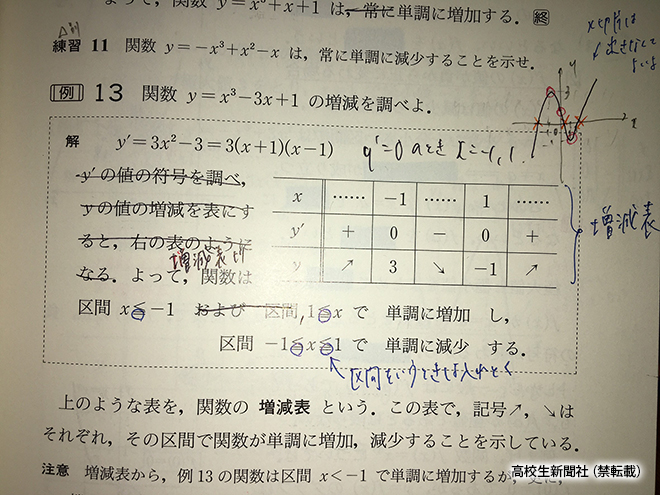 よって，関数 y=x³+x+1 は，常に単調に増加する。 終
練習 11 関数 y=−x³+x²−x は，常に単調に減少することを示せ。
例 13 関数 y=x³−3x+1 の増減を調べよ。
解 y′=3x²−3=3(x+1)(x−1) y'=0 のとき x=-1, 1.
y′の値の符号を調べ，
yの値の増減を表にす
ると，右の表のように
増減表より
なる．よって，関数は
x …… −1 …… 1 ……
y′ + 0 − 0 +
y ↗ 3 ↘ −1 ↗
増減表
区間 x≦−1 および 区間，1≦x で 単調に増加 し，
区間 −1≦x≦1 で 単調に減少 する．
区間というときは入れとく
上のような表を，関数の 増減表 という．この表で，記号↗，↘は
それぞれ，その区間で関数が単調に増加，減少することを示している．
注意 増減表から，例 13 の関数は区間 x<−1 で単調に増加するが，
高校生新聞社（禁転載）